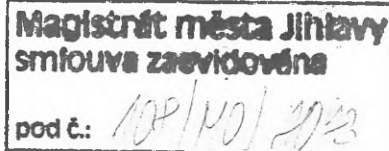 Magistrát města Jihlavy
smlouva zaevidována
pod č.: 108/MO/2013